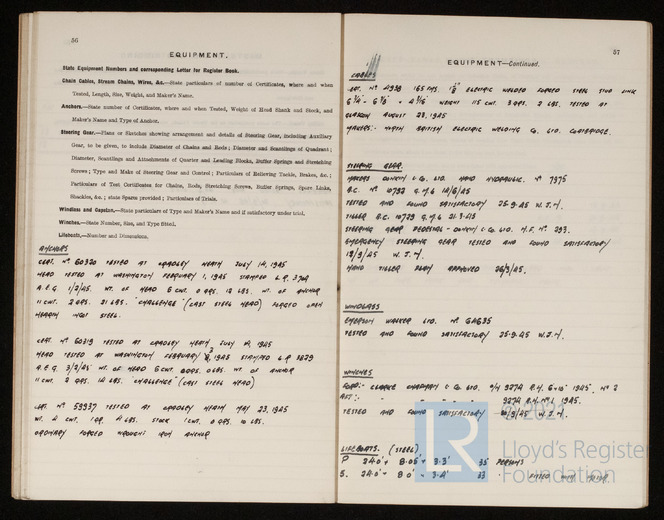 56
EQUIPMENT.
State Equipment Numbers and corresponding Letter for Register Book.
Chain Cables, Stream Chains, Wires, &c.—State particulars of number of Certificates, where and when
Tested, Length, Size, Weight, and Maker's Name.
Anchors.—State number of Certificates, where and when Tested, Weight of Head Shank and Stock, and
Maker's Name and Type of Anchor.
Steering Gear.—Plans or Sketches showing arrangement and details of Steering Gear, including Auxiliary
Gear, to be given, to include Diameter of Chains and Rods; Diameter and Scantlings of Quadrant;
Diameter, Scantlings and Attachments of Quarter and Leading Blocks, Buffer Springs and Stretching
Screws; Type and Make of Steering Gear and Control; Particulars of Relieving Tackle, Brakes, &c.;
Particulars of Test Certificates for Chains, Rods, Stretching Screws, Buffer Springs, Spare Links,
Shackles, &c.; state Spares provided; Particulars of Trials.
Windlass and Capstan.—State particulars of Type and Maker's Name and if satisfactory under trial.
Winches.—State Number, Size, and Type fitted.
Lifeboats.—Number and Dimensions.
ANCHORS
CERT. Nº 60320 TESTED AT CRADLEY HEATH JULY 14, 1945
HEAD TESTED AT WASHINGTON FEBRUARY 1, 1945 STAMPED L.R.
A.E.G. 1/2/45. WT. OF HEAD 6 CWT. 0 QRS. 12 LBS. WT. OF ANCHOR
11 CWT. 2 QRS. 21 LBS. "CHALLENGE" (CAST STEEL HEAD) FORGED OPEN
HEARTH INGOT STEEL.
CERT. Nº 60319 TESTED AT CRADLEY HEATH JULY 14, 1945
HEAD TESTED AT WASHINGTON FEBRUARY 3, 1945 STAMPED L.R. 3829
A.E.G. 3/2/45 WT. OF HEAD 6 CWT. 0 QRS. 0 LBS. WT. OF ANCHOR
11 CWT. 2 QRS. 14 LBS. "CHALLENGE" (CAST STEEL HEAD)
CERT. Nº 59937 TESTED AT CRADLEY HEATH MAY 23, 1945
WT. 4 CWT. 1 QR. 4 LBS. STOCK 1 CWT. 0 QRS. 10 LBS.
ORDINARY FORGED WROUGHT IRON ANCHOR
57
EQUIPMENT—Continued.
CABLES
CERT. Nº 4938 165 FMS. ELECTRIC WELDED FORGED STEEL STUD LINK
WEIGHT 115 CWT. 3 QRS. 2 LBS. TESTED AT
GLASGOW AUGUST 28, 1945
MAKERS:- NORTH BRITISH ELECTRIC WELDING CO. LTD. COATBRIDGE.
STEERING GEAR.
MAKERS DONKIN & CO. LTD. HAND HYDRAULIC. Nº 7975
R.C. Nº 10732
TESTED AND FOUND SATISFACTORY 25.9.45 W.J.H.
TILLER R.C. 10729
STEERING GEAR PEDESTAL - DONKIN & CO LTD. H.F. Nº 293.
EMERGENCY STEERING GEAR TESTED AND FOUND SATISFACTORY
W.J.H.
HAND TILLER PLAN APPROVED
WINDLASS
EMERSON WALKER LTD. Nº GA635
TESTED AND FOUND SATISFACTORY 25.9.45 W.J.H.
WINCHES
FORD:- CLARKE CHAPMAN & CO LTD. 927A R.H. 6 x 10" 1945. Nº 2
AFT:- " " " " 927A R.H. Nº 1 1945.
TESTED AND FOUND SATISFACTORY W.J.H.
LIFEBOATS. (STEEL)
P 24.0' x 8.05' x 3.3' 35 PERSONS
S. 24.0' x 8.0' x 3.4' 33 " FITTED WITH MOTOR.
© 2021
LR
Lloyd's Register
Foundation